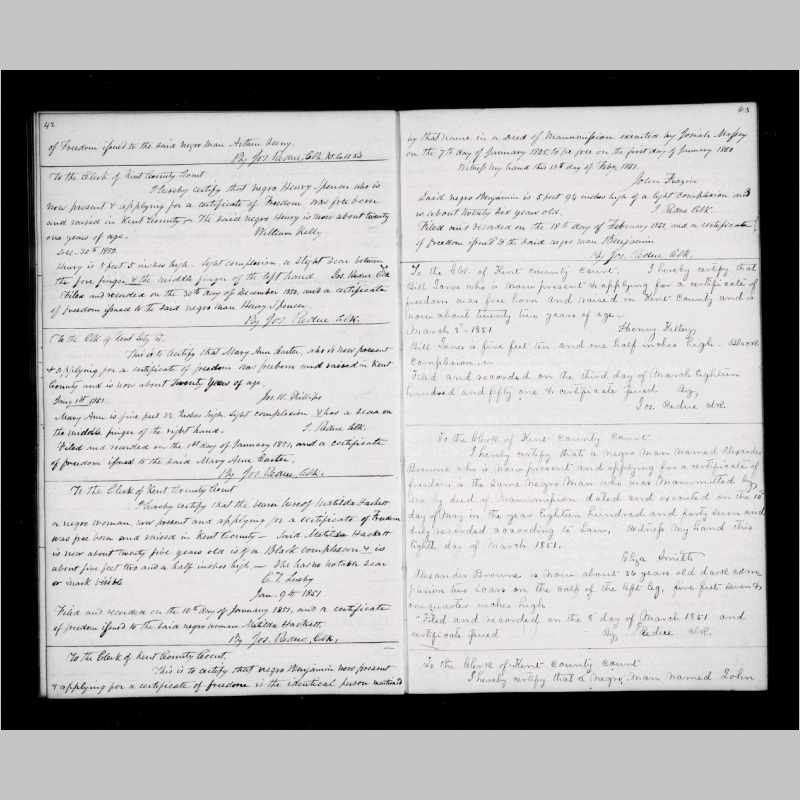 42
of Freedom issued to the said negro man
By Jos. Redue, Clk
To the Clerk of Kent County Court
I hereby certify that negro Henry Spencer who is
now present & applying for a certificate of Freedom was free born
and raised in Kent County - The said negro Henry is now about twenty
one years of age.
William Kelly
Dec. 30th 1850.
Henry is 5 feet 5 inches high - light complexion, a slight scar between
the fore finger & the middle finger of the left hand Jos. Redue Clk
Filed and recorded on the 30th day of December 1850, and a certificate
of freedom issued to the said negro man Henry Spencer
By Jos. Redue Clk.
To the Clk. of Kent
This is to certify that Mary Ann Carter, who is now present
& applying for a certificate of freedom was freeborn and raised in Kent
County and is now about Twenty Years of age.
Jany 1st 1851.
Jos. W. Phillips
Mary Ann is five feet inches high, light complexion & has a scar on
the middle finger of the right hand. J. Redue Clk.
Filed and recorded on the 1st day of January 1851, and a certificate
of freedom issued to the said Mary Ann Carter.
By Jos Redue, Clk.
To the Clerk of Kent County Court
I hereby certify that the bearer hereof Matilda Hackett
a negro woman, now present and applying for a certificate of Freedom
was free born and raised in Kent County - Said Matilda Hackett
is now about twenty five years old is of a Black complexion & is
about five feet two and a half inches high - She has no notable scar
or mark visible
C. T.
Jan. 9th 1851
Filed and recorded on the 10th day of January 1851, and a certificate
of freedom issued to the said negro woman Matilda Hackett.
By Jos. Redue, Clk.
To the Clerk of Kent County Court.
This is to certify that negro Benjamin now present
& applying for a certificate of freedom is the identical person mentioned
43
by that name in a Deed of Manumission executed by Josiah Massey
on the 7th day of January 1825, to be free on the first day of January 1850
Witness my hand this 18th day of Feby. 1851.
John Frazier
Said negro Benjamin is 5 feet 9½ inches high of a light complexion and
is about twenty six years old. J. Redue Clk.
Filed and recorded on the 18th day of February 1851 and a certificate
of freedom issued to the said negro man Benjamin
By Jos. Redue Clk.
To the Clk. of Kent County Court. I hereby certify that
Bill Jones who is now present & applying for a certificate of
freedom was free born and raised in Kent County and is
now about twenty two years of age -
March 3d 1851 Henry Kelley
Bill Jones is five feet ten and one half inches high - Black
complexion
Filed and recorded on the third day of March Eighteen
hundred and fifty one & certificate issued By,
Jos. Redue Clk.
To the Clerk of Kent County Court
I hereby certify that a negro man named Alexander
Browne who is now present and applying for a certificate of
freedom is the same Negro Man who was Manumitted by
me by deed of Manumission dated and executed on the 10
day of May in the year Eighteen hundred and forty seven and
duly recorded according to Law. Witness my hand this
Eighth day of March 1851.
Eliza Smith
Alexander Browne is now about 36 years old dark com
plexion two scars on the calf of the left leg, five feet seven &
one quarter inches high
Filed and recorded on the 8 day of March 1851 and
certificate issued By Redue Clk.
To the Clerk of Kent County Court
I hereby certify that a negro man named John